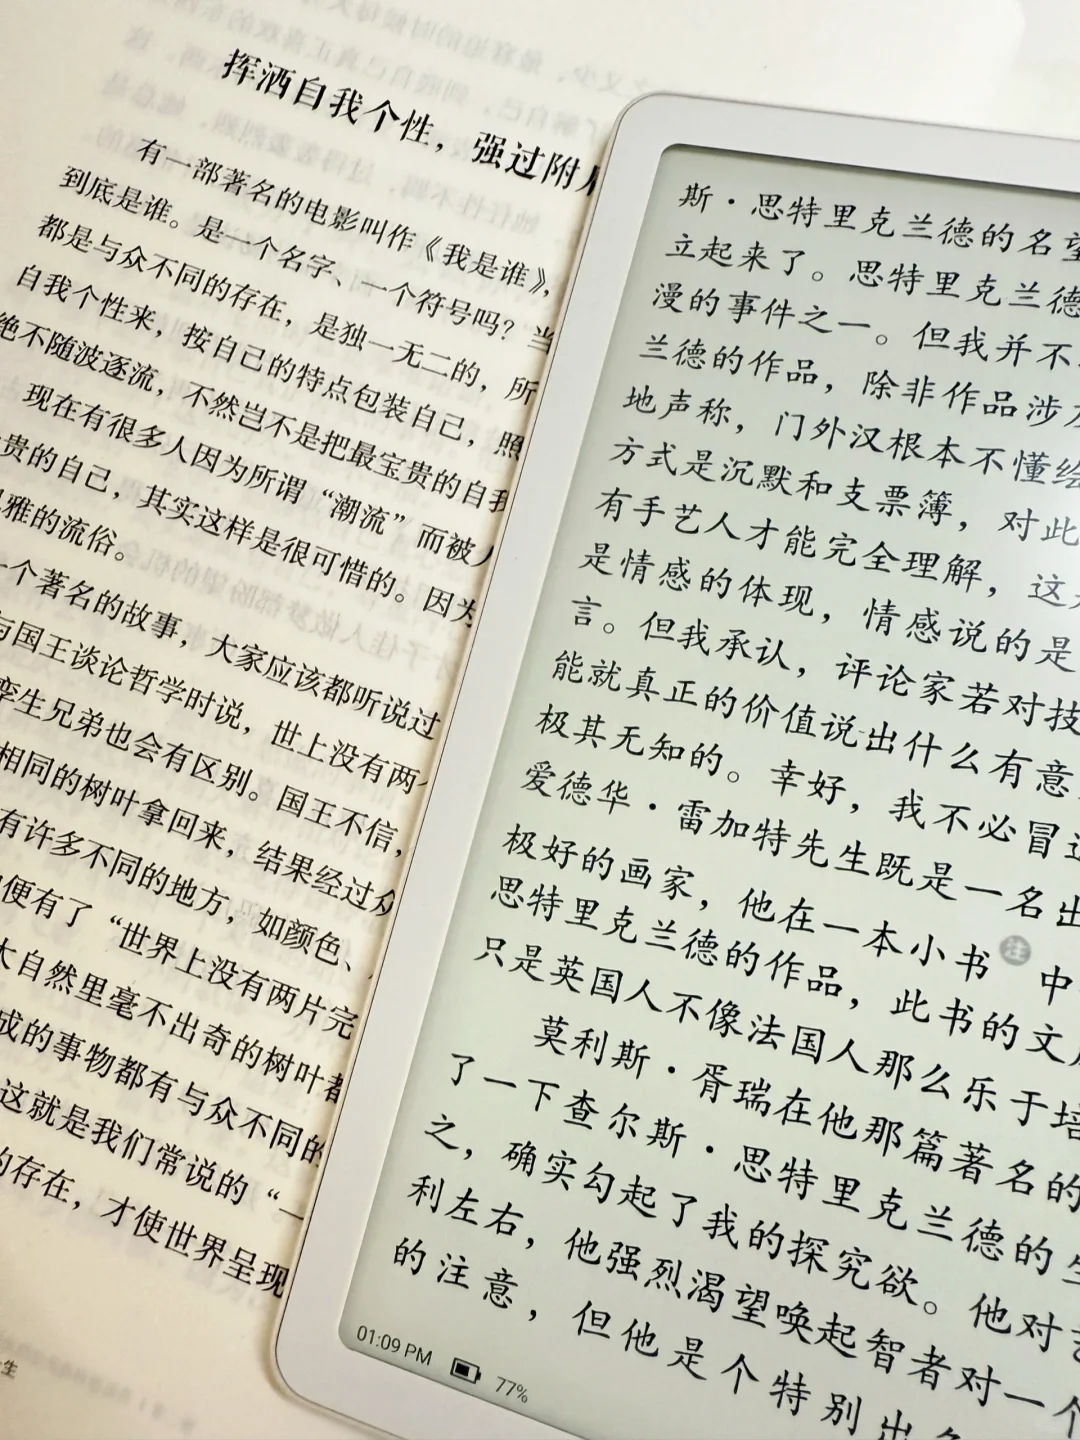 挥洒自我个性，强过附
有一部著名的电影叫作《我是谁》，
到底是谁。是一个名字、一个符号吗？当
都是与众不同的存在，是独一无二的，所
自我个性来，按自己的特点包装自己，照
绝不随波逐流，不然岂不是把最宝贵的自我
现在有很多人因为所谓“潮流”而被人
贵的自己，其实这样是很可惜的。因为
雅的流俗。
一个著名的故事，大家应该都听说过
与国王谈论哲学时说，世上没有两个
孪生兄弟也会有区别。国王不信，
相同的树叶拿回来，结果经过众
有许多不同的地方，如颜色、
便有了“世界上没有两片完
大自然里毫不出奇的树叶都
成的事物都有与众不同的
这就是我们常说的“一
的存在，才使世界呈现
生
斯·思特里克兰德的名望
立起来了。思特里克兰德
漫的事件之一。但我并不
兰德的作品，除非作品涉及
地声称，门外汉根本不懂绘
方式是沉默和支票簿，对此
有手艺人才能完全理解，这
是情感的体现，情感说的是
言。但我承认，评论家若对技
能就真正的价值说出什么有意
极其无知的。幸好，我不必冒
爱德华·雷加特先生既是一名出
极好的画家，他在一本小书 注 中
思特里克兰德的作品，此书的文
只是英国人不像法国人那么乐于培
莫利斯·胥瑞在他那篇著名的
了一下查尔斯·思特里克兰德的生
之，确实勾起了我的探究欲。他对
利左右，他强烈渴望唤起智者对一个
的注意，但他是个特别出
01:09 PM 77%